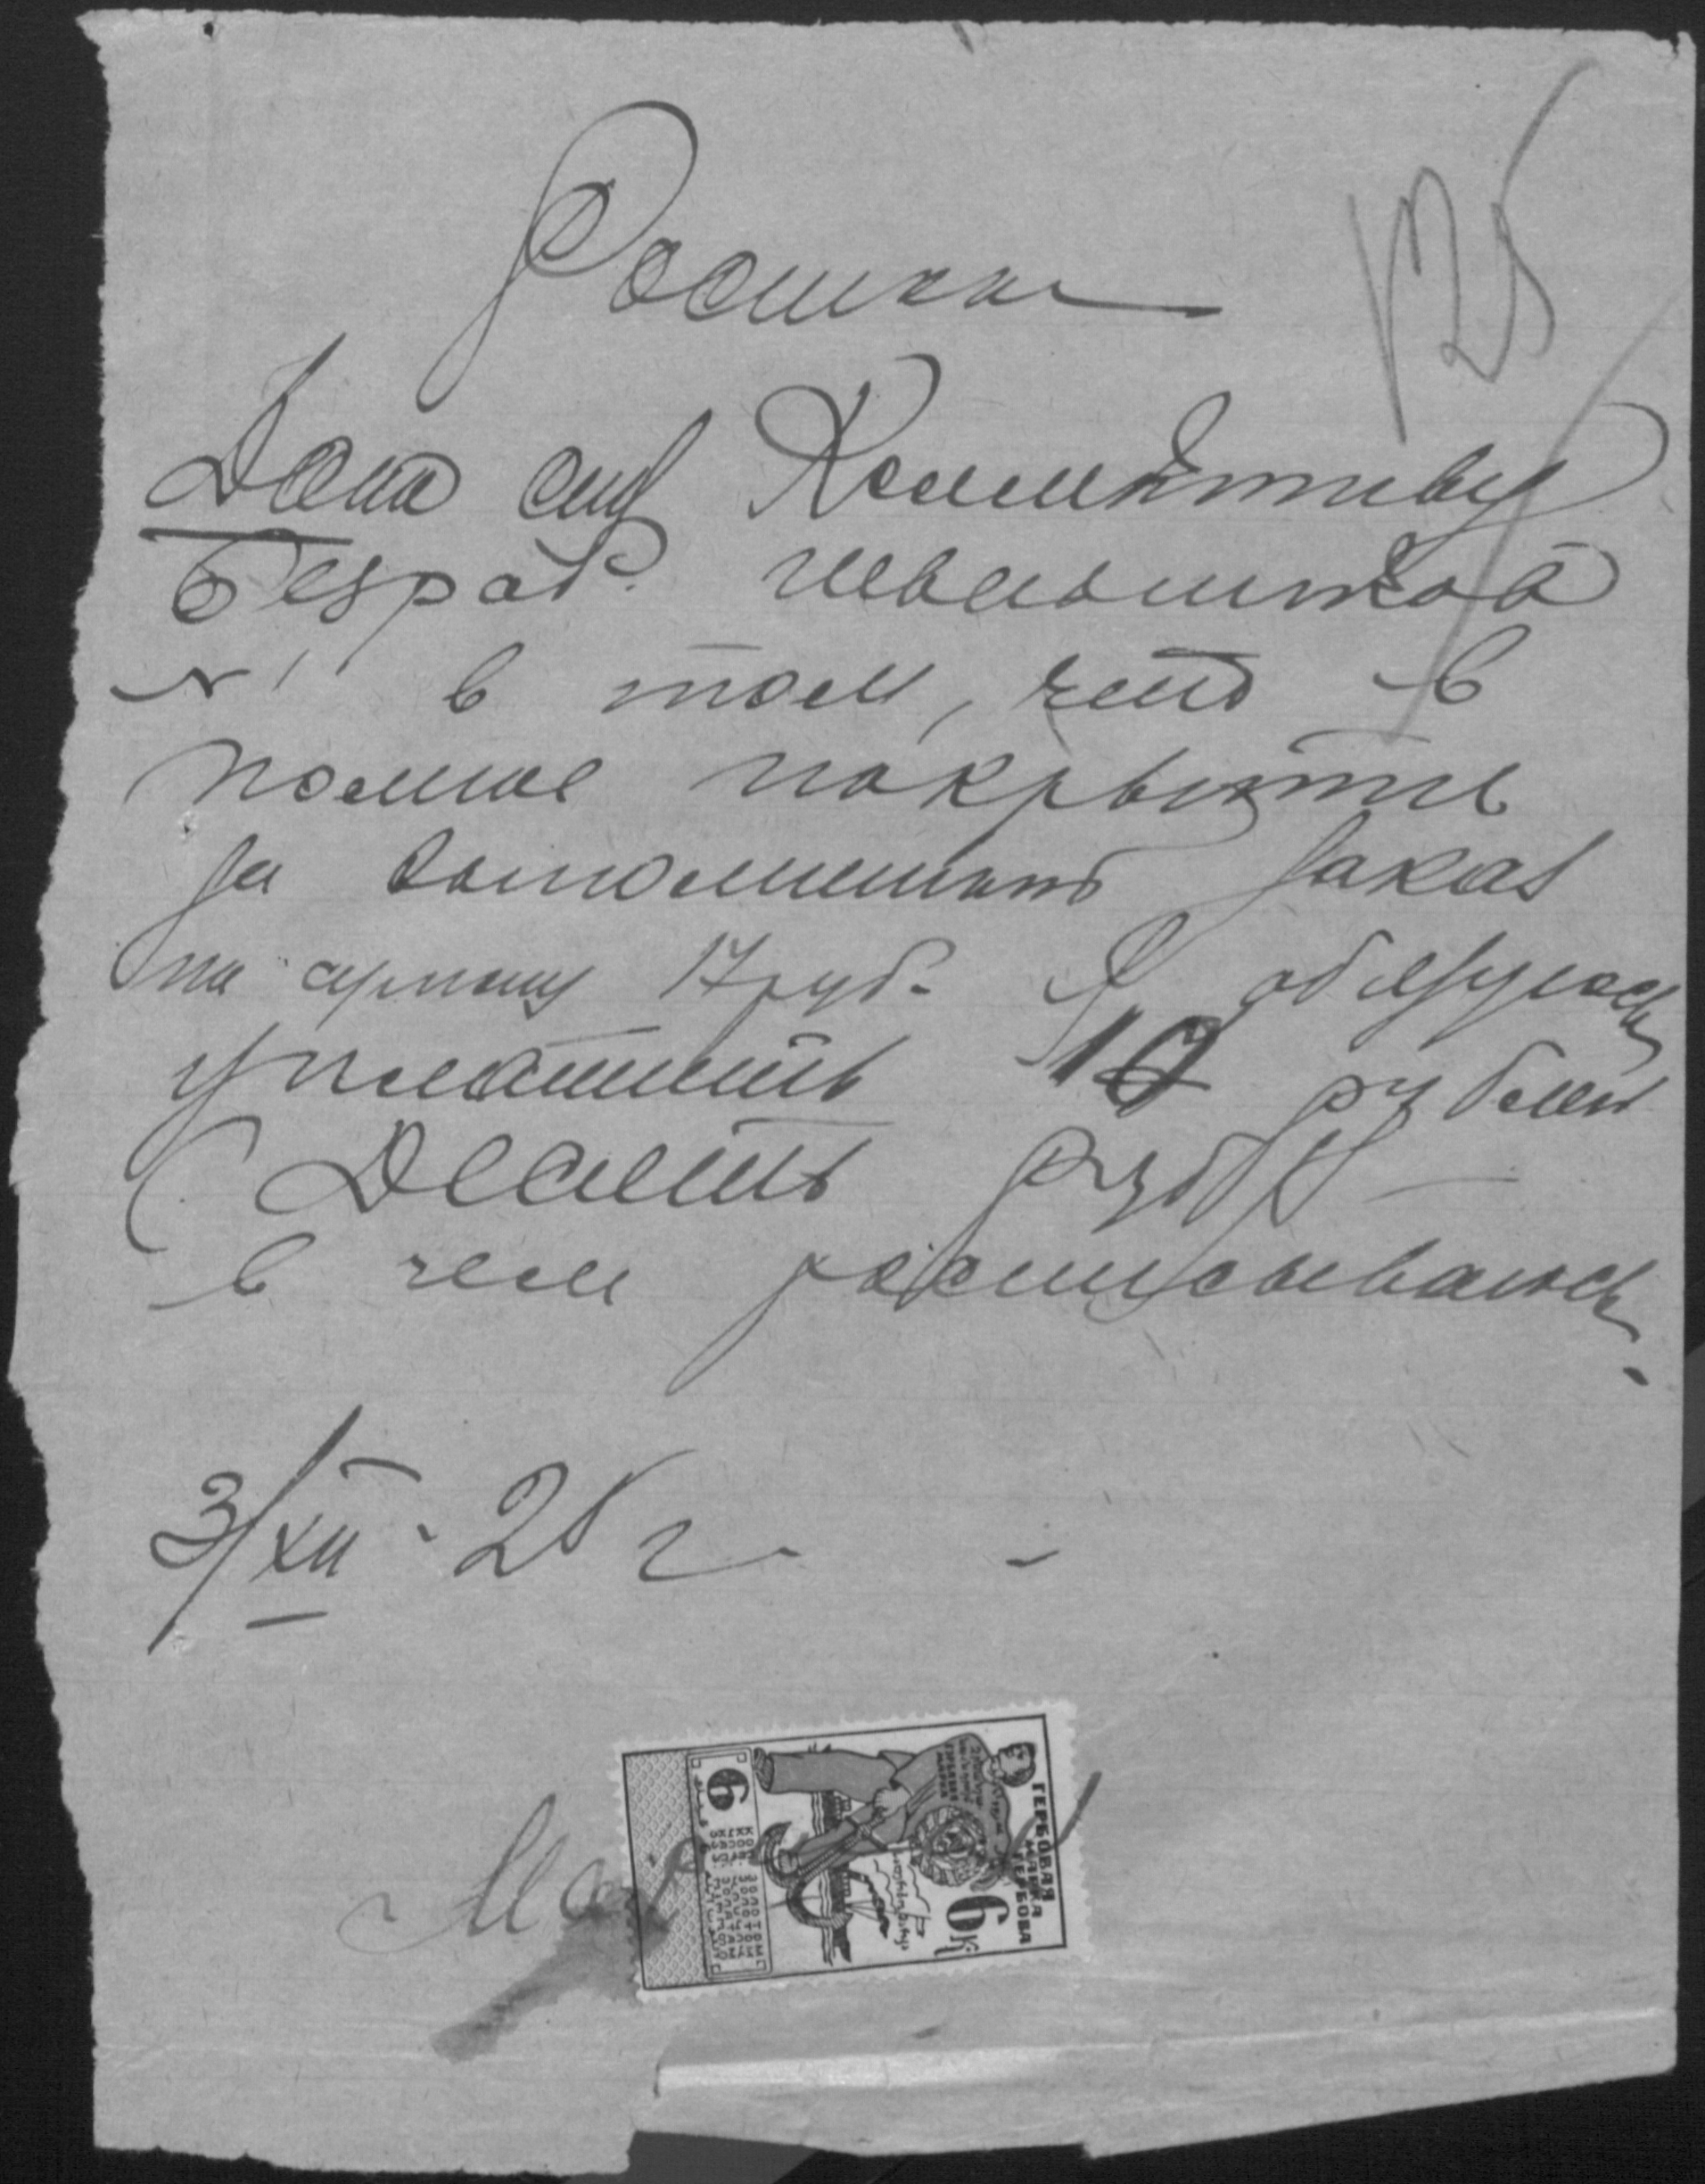 125
Росписка
Дана сия Коллективу
безраб. швейников
№ 1 в том, что в
полное покрытие
за выполненный заказ
на сумму 17 руб. Я обязуюсь
уплатить 10 рублей
(Десять руб)
в чем расписываюсь.
3/XII - 25 г.
ГЕРБОВАЯ
МАРКА
6 К
6